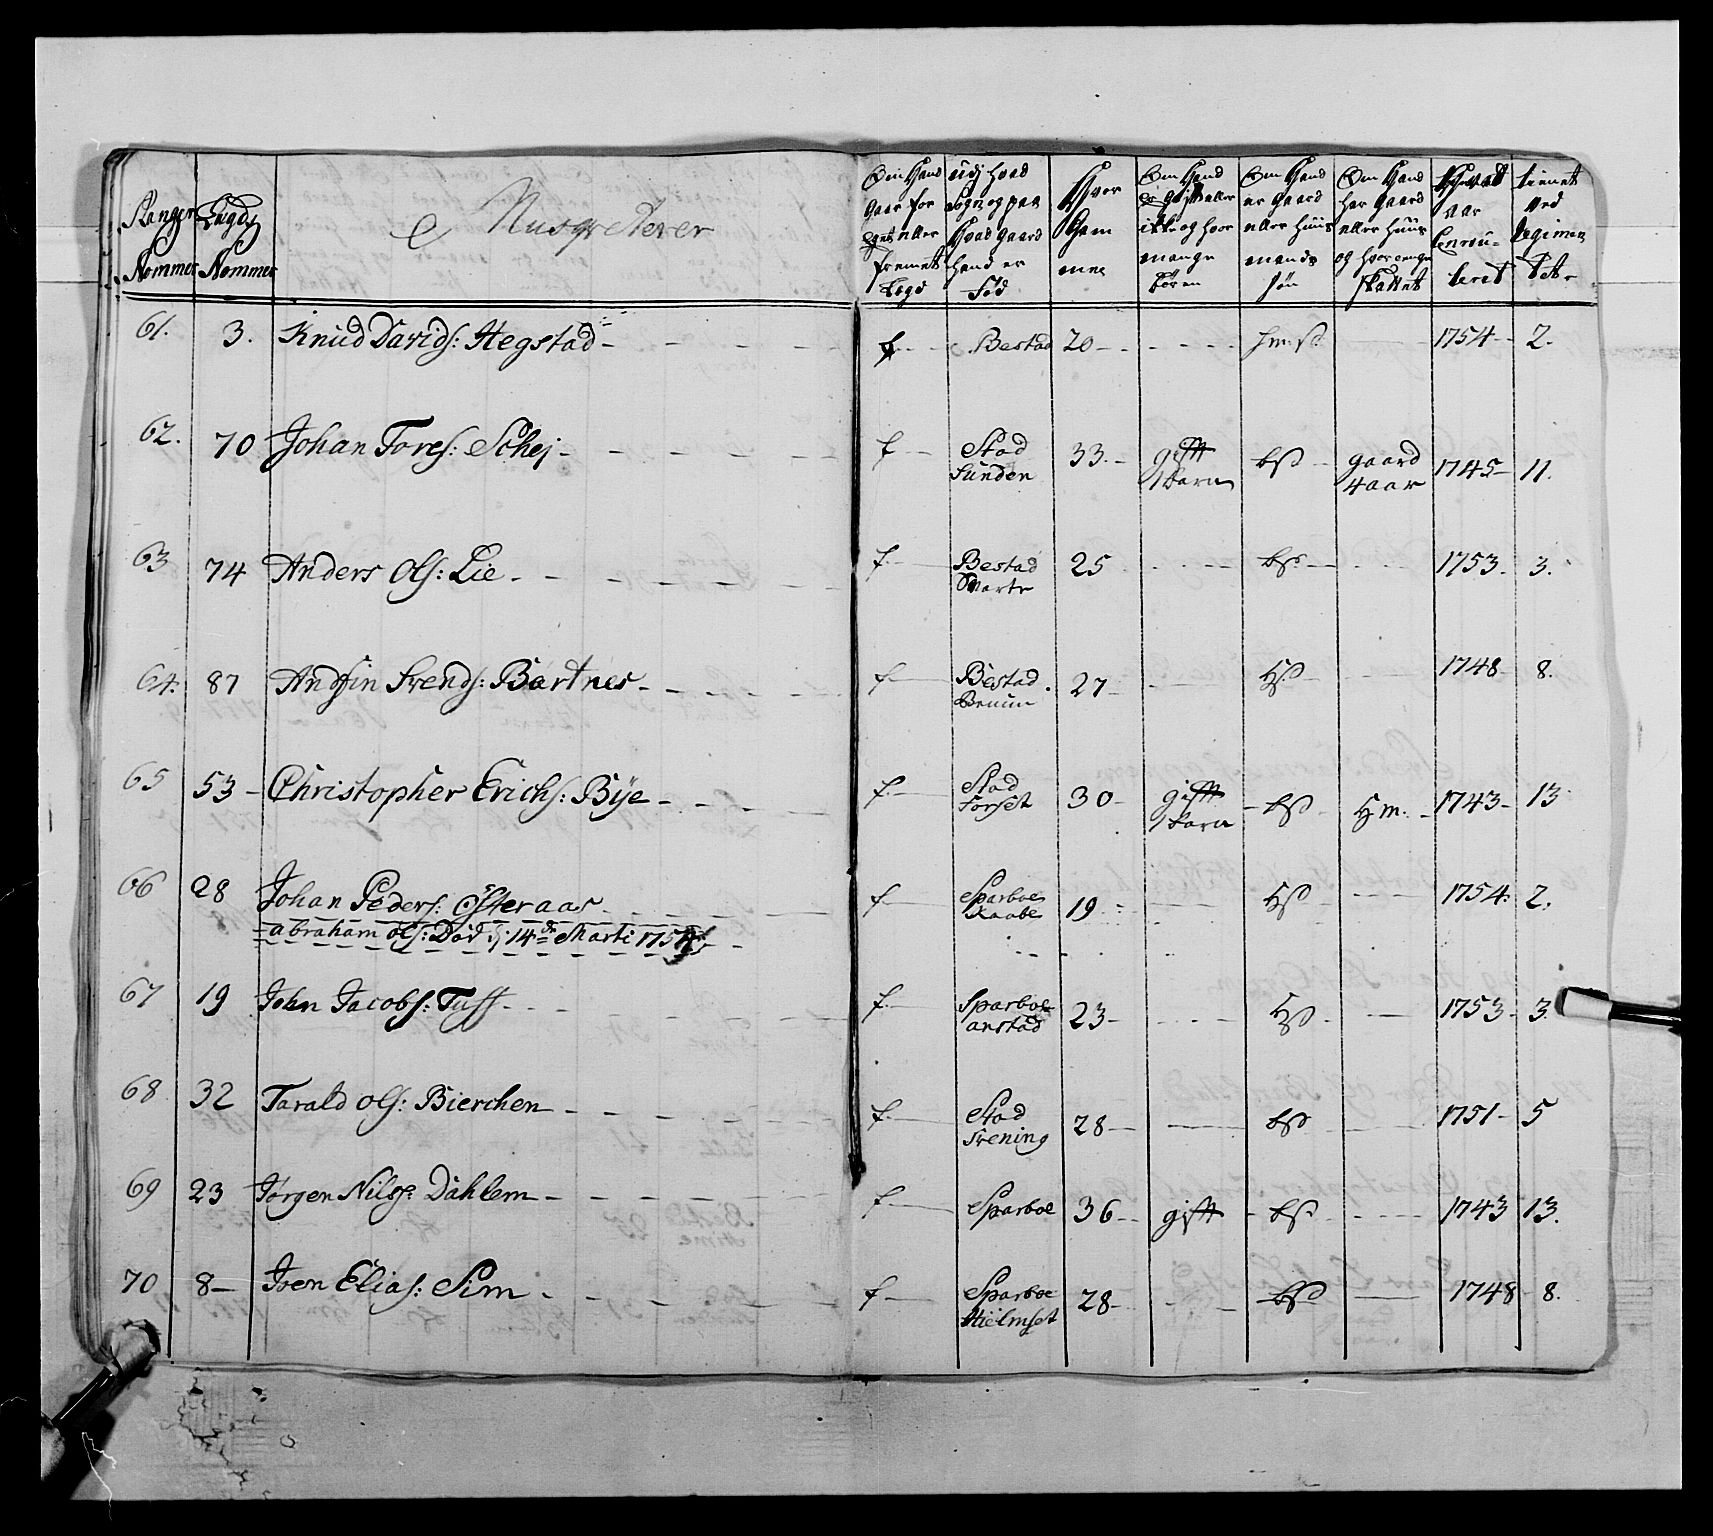 Ranger Nommer
Lægds Nommer
Musqveterer
Om Hand Gaar for Eget eller fremet Legd
udj hvad Sogn og paa Hvad gaard Hand er Fød
Hvor Gam mel
Om Hand er gift eller ikke og hvor mange børen
Om Hand er Gaard eller Huus mands søn
Om Hand har Gaard eller Huus og hvor længe
Hvad aar Enrou leret
tienet ved Regimen tet
61. 3. Knud Davids: Hegstad f Bestad 20 Hm:s 1754 2.
62. 70 Johan Tores: Schej f Stad Sunden 33. gift 1 barn bs gaard 4 aar 1745 11.
63 74 Anders Ols: Lie f Bestad Qvarte 25 bs 1753 3.
64. 87 Andfin Svends: Bartnes f Bestad 27 Hs 1748 8.
65 53 Christopher Erichs: Bÿe f Stad Forset 30 gift 1 barn bs Hm: 1743 13
66 28 Johan Peders: Østeraas f Sparboe Raabe 19 Hs 1754 2.
abraham ols: Död dj 14de Marti 1754
67 19 John Jacobs: Tuff f Sparboe anstad 23 Hs 1753 3.
68 32 Tarald ols: Bierchen f Stad Svening 28 bs 1751 5
69 23 Jörgen Nilss: Dahlem f Sparboe 36 gift bs 1743 13.
70 8 Iven Elias: Sim f Sparboe Hielmset 28 bs 1748 8.